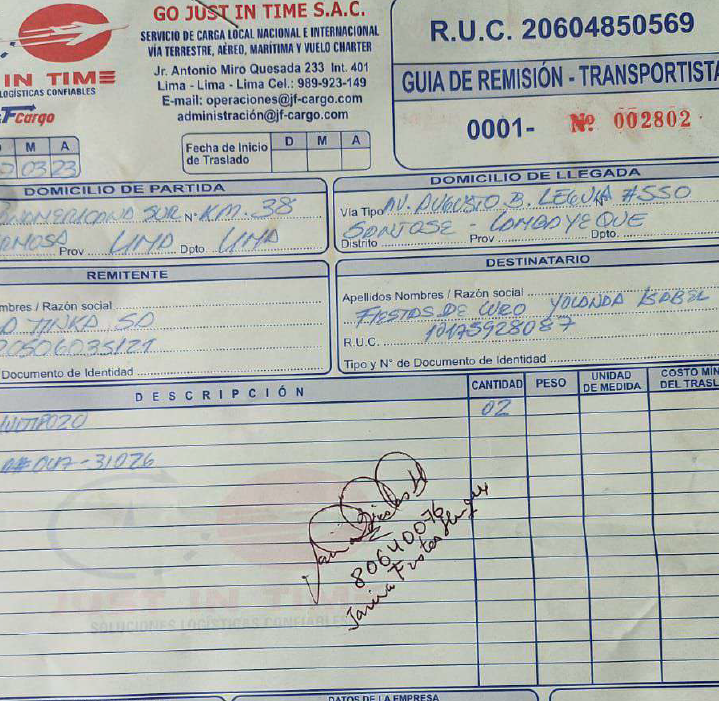 GO JUST IN TIME S.A.C.
SERVICIO DE CARGA LOCAL NACIONAL E INTERNACIONAL
VÍA TERRESTRE, AÉREO, MARÍTIMA Y VUELO CHARTER
Jr. Antonio Miro Quesada 233 Int. 401
Lima - Lima - Lima Cel.: 989-923-149
E-mail: operaciones@jf-cargo.com
administración@jf-cargo.com
IN TIME
LOGÍSTICAS CONFIABLES
JFcargo
R.U.C. 20604850569
GUIA DE REMISIÓN - TRANSPORTISTA
0001- Nº 002802
M A
03 23
Fecha de Inicio de Traslado D M A
DOMICILIO DE PARTIDA
SUR N° KM. 38
Prov LIMA Dpto. LIMA
DOMICILIO DE LLEGADA
Vía Tipo AV. AUGUSTO B. LEGUIA #550
SAN JOSE - LAMBAYEQUE
Distrito Prov Dpto.
REMITENTE
mbres / Razón social
TINKA SA
20506035121
Documento de Identidad
DESTINATARIO
Apellidos Nombres / Razón social
FIESTAS DE CURO YOLANDA ISABEL
R.U.C. 10175928087
Tipo y N° de Documento de Identidad
DESCRIPCIÓN CANTIDAD PESO UNIDAD DE MEDIDA COSTO MÍN DEL TRASL
02
047-31026
80640076
JUST IN TIME
SOLUCIONES LOGÍSTICAS CONFIABLES
DATOS DE LA EMPRESA